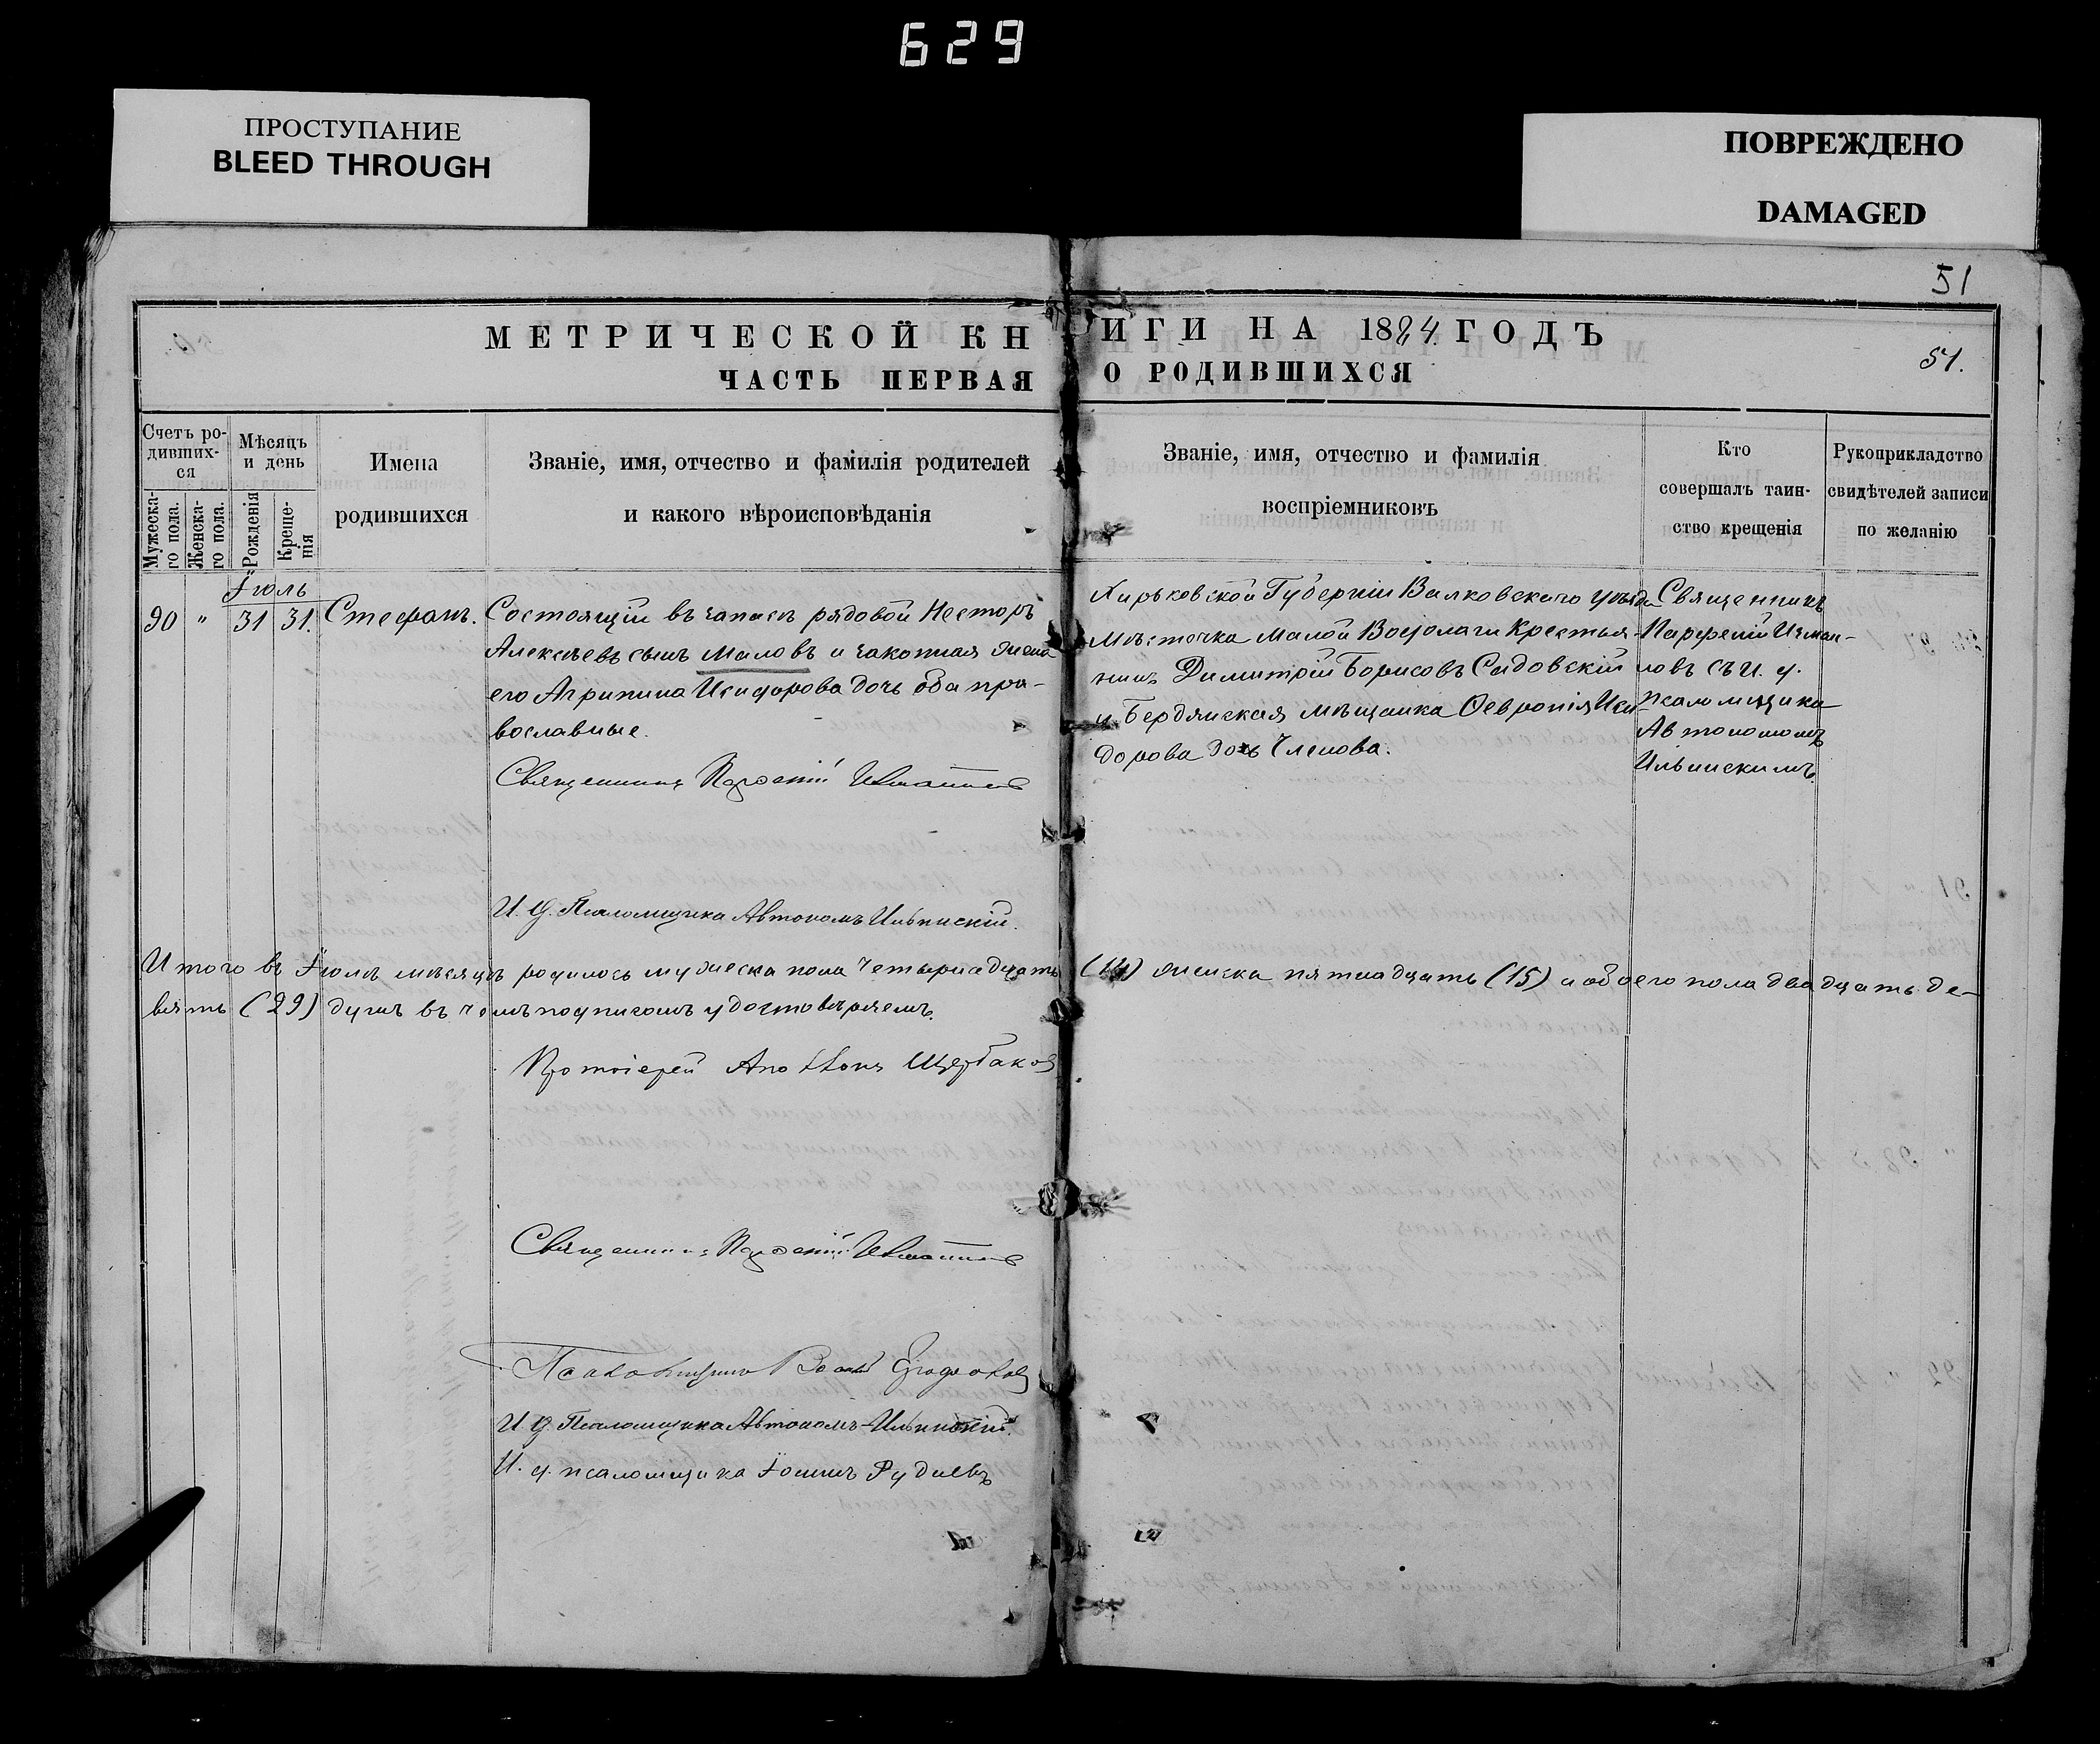 629
ПРОСТУПАНИЕ
BLEED THROUGH
ПОВРЕЖДЕНО
DAMAGED
51
МЕТРИЧЕСКОЙ КНИГИ НА 1884 ГОДЪ
51.
ЧАСТЬ ПЕРВАЯ О РОДИВШИХСЯ
Счетъ ро-
дивших-
ся
Мужеска-
го пола.
Женска-
го пола.
Мѣсяцъ
и день
Рожденія
Креще-
нія
Имена
родившихся
Званіе, имя, отчество и фамилія родителей
и какого вѣроисповѣданія
Званіе, имя, отчество и фамилія
воспріемниковъ
Кто
совершалъ таин-
ство крещенія
Рукоприкладство
свидѣтелей записи
по желанію
Іюль
90 " 31 31. Стефанъ.
Состоящій въ запасѣ рядовой Несторъ
Алексѣевъ сынъ Маловъ и законная жена
его Агрипина Исидорова дочь оба пра-
вославные.
Священникъ Парфеній
И. д. Псаломщика Автономъ Ильинскій.
Харьковской Губерніи Валковскаго уѣзда
мѣстечка Малой Крестья-
нинъ Димитрій Борисовъ Садовскій
и Бердянская мѣщанка Ѳевронія Иси-
дорова дочь Членова.
Священникъ
Парфеній Изман-
ловъ съ И. д.
псаломщика
Автономомъ
Ильинскимъ.
Итого въ Іюлѣ мѣсяцѣ родилось мужеска пола четырнадцать (14) женска пятнадцать (15) и обоего пола двадцать де-
вять (29) душъ въ чемъ подписомъ удостовѣряемъ.
Протоіерей Щербаковъ
Священникъ Парфеній
И. д. Псаломщика Автономъ Ильинскій.
И. д. псаломщика Рудневъ